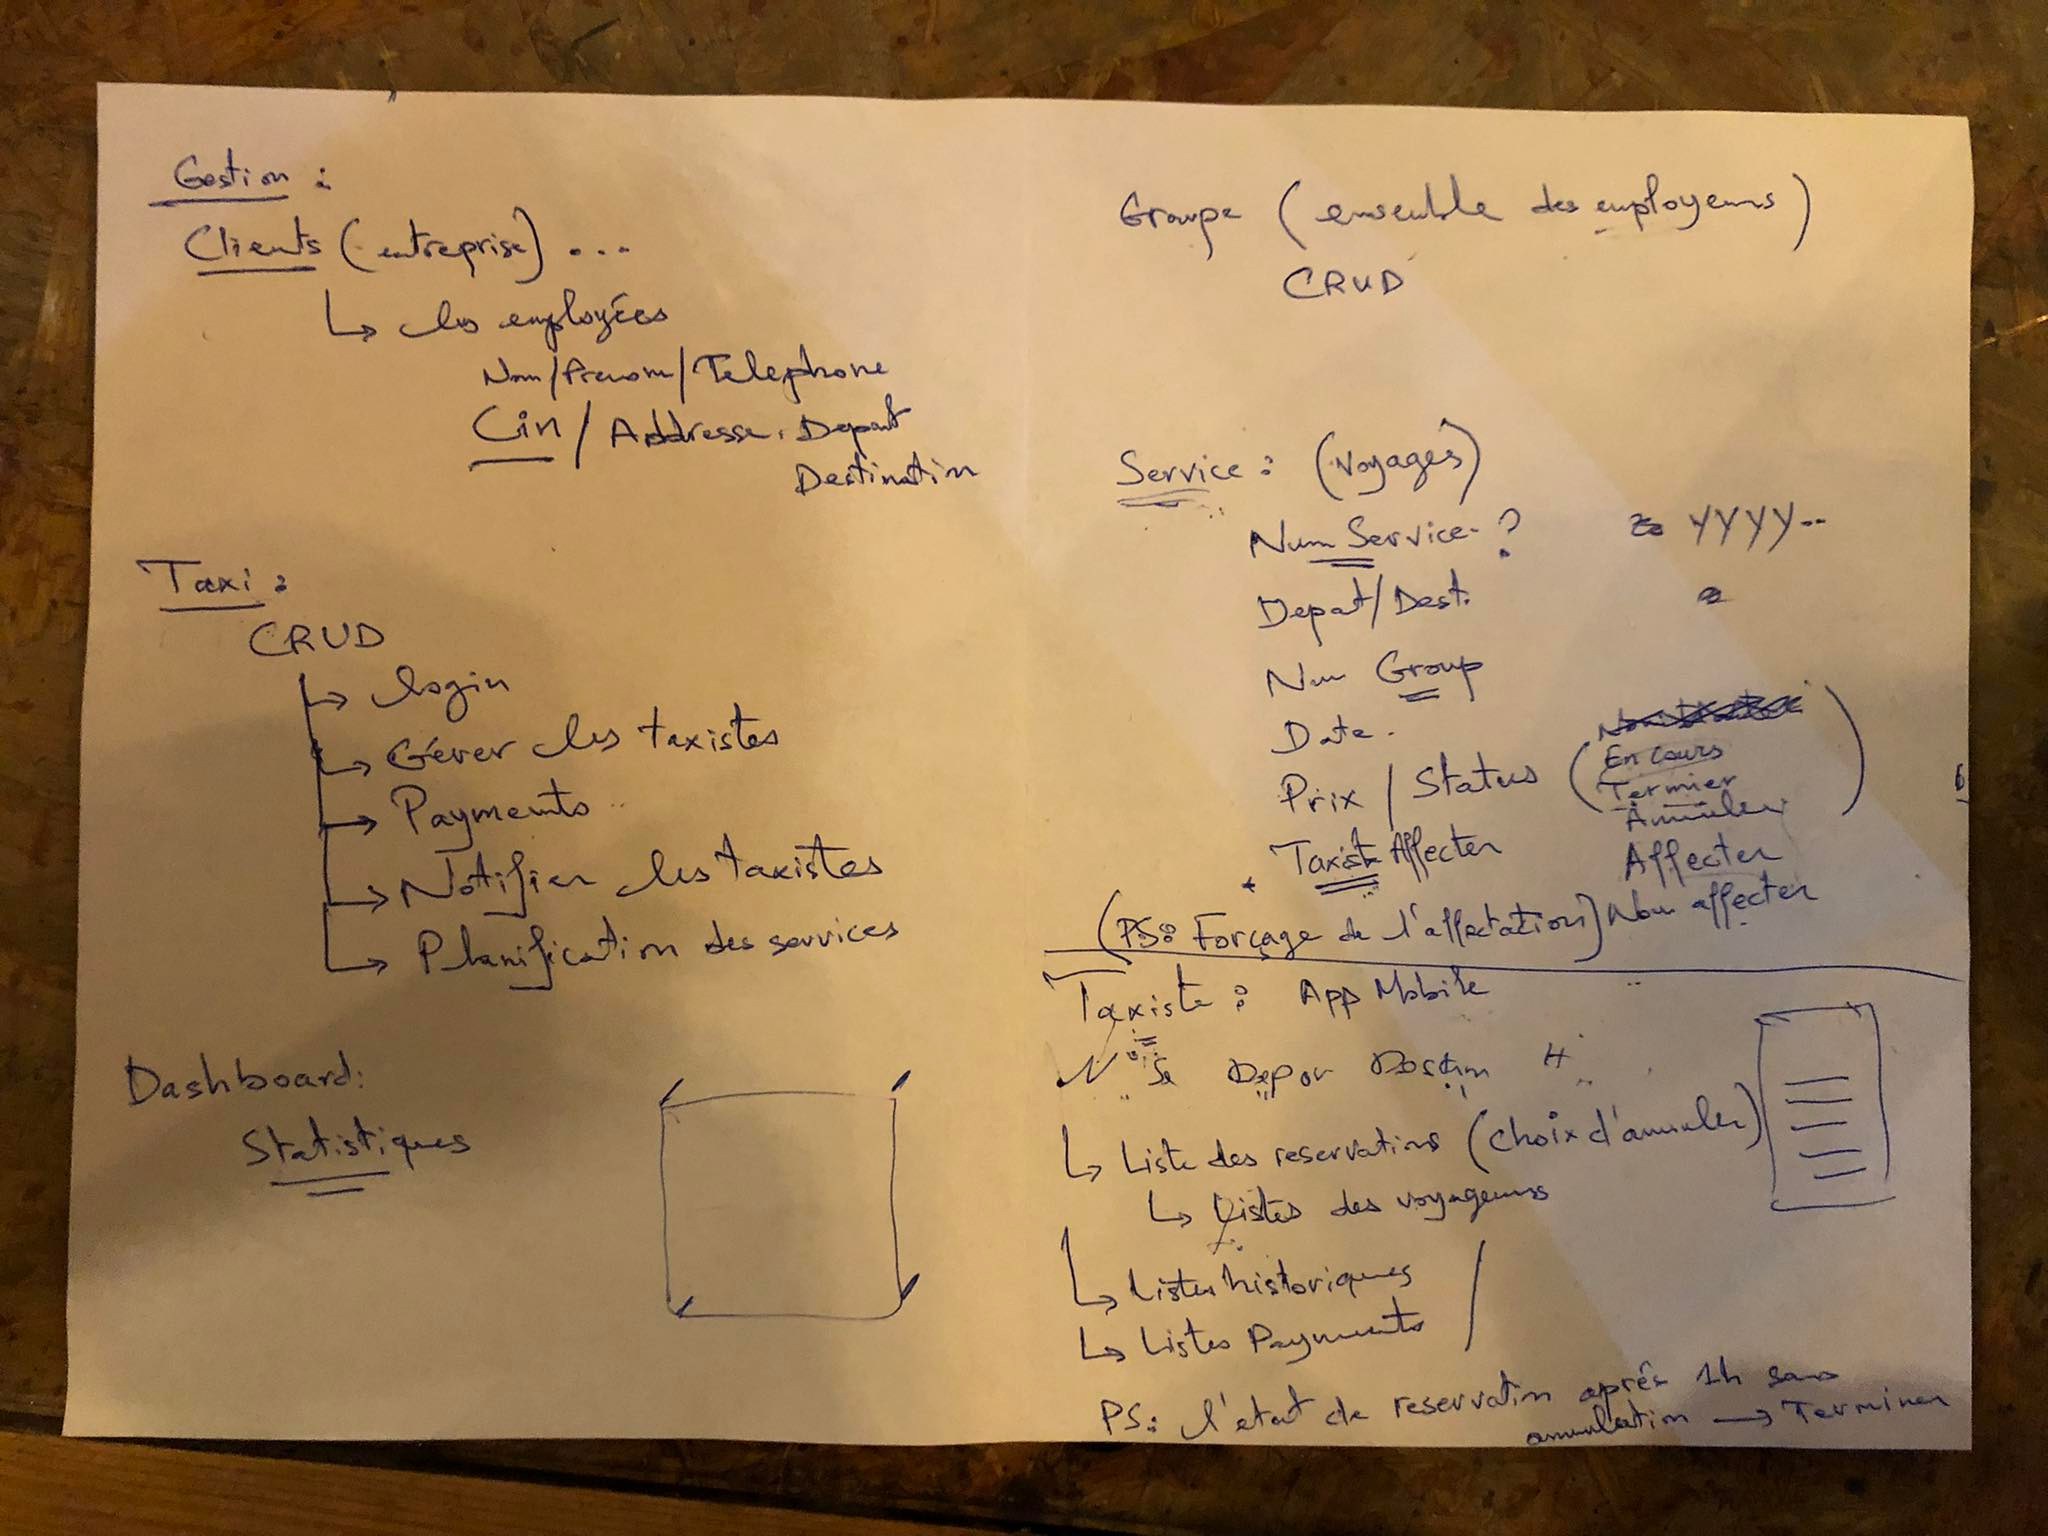 Gestion :
Clients (entreprise) ...
↳ les employées
Nom/Prenom/Telephone
Cin / Addresse. Depart
Destination
Taxi :
CRUD
→ login
→ Gérer les taxistes
→ Payments
→ Notifier les taxistes
→ Planification des services
Dashboard:
Statistiques
Groupe (ensemble des employeurs)
CRUD
Service : (Voyages)
Num Service ? YYYY..
Depat/Dest.
Num Group
Date.
Prix / Status (En cours
Termier
Annuler)
Taxiste Affecter
Affecter
Non affecter
(PS: Forçage de l'affectation)
Taxiste : App Mobile
N° Se Depar Destin H
↳ Liste des reservations (choix d'annuler)
↳ Listes des voyageurs
↳ Listes historiques
↳ Listes Payments
PS: l'etat de reservation aprés 1h sans
annulation → Terminer